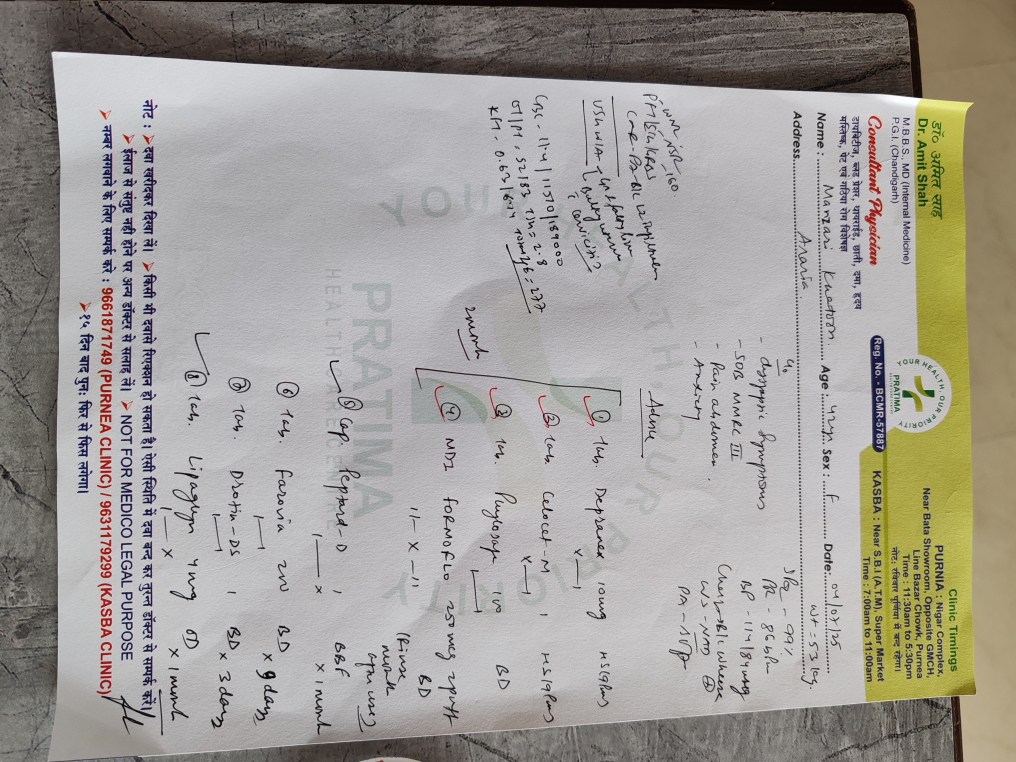 डॉ० अमित साह
Dr. Amit Shah
M.B.B.S., MD (Internal Medicine)
P.G.I. (Chandigarh)
Consultant Physician
डायबिटीज, ब्लड प्रेशर, थायराईड, छाती, दमा, हृदय
मस्तिष्क, पेट एवं गठिया रोग विशेषज्ञ
YOUR HEALTH, OUR PRIORITY
PRATIMA
Reg. No. - BCMR-57887
Clinic Timings
PURNIA : Nigar Complex,
Near Bata Showroom, Opposite GMCH,
Line Bazar Chowk, Purnea
Time : 11:30am to 5:30pm
नोट: रविवार पूर्णिया में बन्द रहेगा।
KASBA : Near S.B.I (A.T.M), Super Market
Time : 7:00am to 11:00am
Name : Manzari Khatoon Age : 42y Sex : F Date: 04/07/25
Address. Araria
Wt - 53 kg
SPO2 - 99%
PR - 86 bpm
BP - 114/84 mmHg
Chest - B/L wheeze
PA - soft
C/o
- dyspeptic symptoms
- SOB MMRC III
- Pain abdomen
- Anxiety
USG W/A - Gr I fatty liver
Bulky uterus
cervicitis
CBC - 11.4 / 11570 / 189000
OT/PT - 52/83
KFT - 0.63
Advise
① Tab. Depranex 10mg
② Tab. Celocet-M
③ Tab. BD
④ MDI FORMOFLO 250mcg 2puff BD
(Rinse mouth after use)
2 month
⑤ Cap. Peptard-D, BBF x 1 month
⑥ Tab. Farovia 200 BD x 9 days
⑦ Tab. Drotin-DS, BD x 3 days
⑧ Tab. Lipaglyn 4mg OD x 1 month
YOUR HEALTH OUR
PRATIMA
HEALTHCARE CENTRE
नोट : ➤ दवा खरीदकर दिखा लें। ➤ किसी भी दवासे रिएक्शन हो सकता है। ऐसी स्थिति में दवा बन्द कर तुरन्त डॉक्टर से सम्पर्क करें।
➤ ईलाज से संतुष्ट नही होने पर अन्य डॉक्टर से सलाह लें। ➤ NOT FOR MEDICO LEGAL PURPOSE
➤ नम्बर लगवाने के लिए सम्पर्क करे : 9661871749 (PURNEA CLINIC) / 9631179299 (KASBA CLINIC)
➤ १५ दिन बाद पुन: फिर से फिस लगेगा।